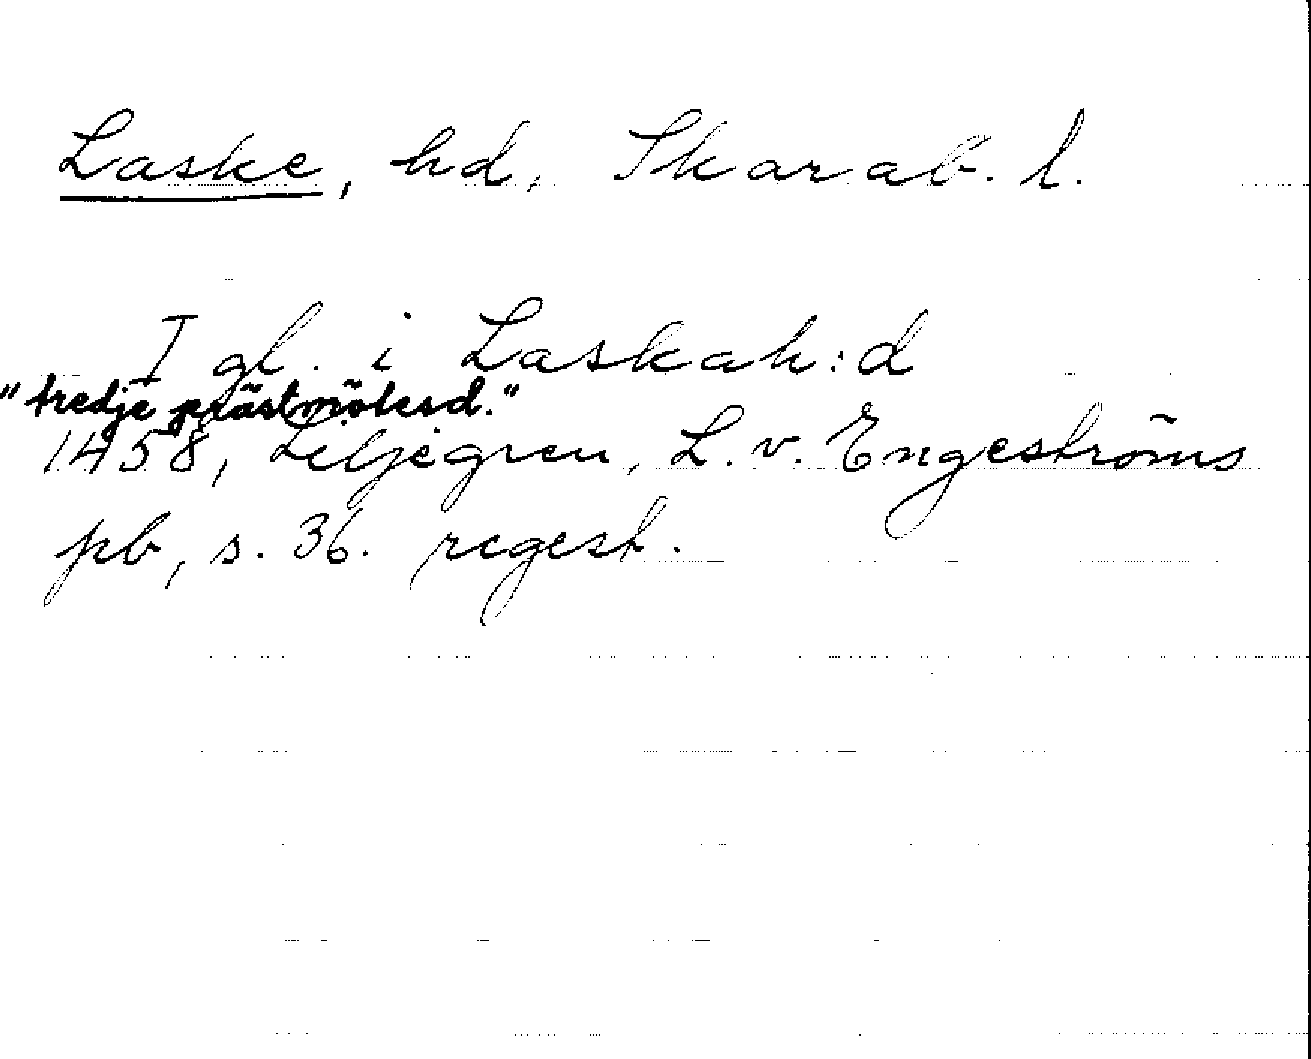 Laske, hd, Skarab. l.
I gl. i Laskah:d
"tredje prästmötesd."
1458, Liljegren, L. v. Engeströms
pb, s. 36. regest.